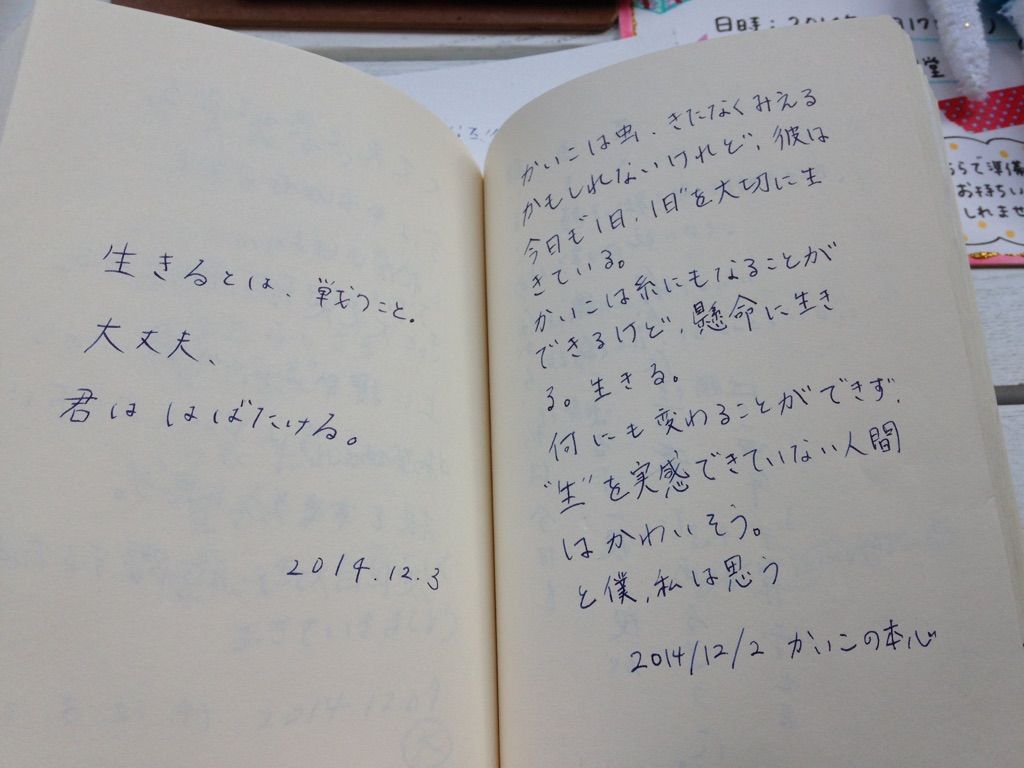 生きるとは、戦うこと。
大丈夫、
君は はばたける。
2014.12.3
かいこは虫、きたなくみえる
かもしれないけれど、彼は
今日も1日、1日を大切に生
きている。
かいこは糸にもなることが
できるけど、懸命に生き
る。生きる。
何にも変わることができず、
"生"を実感できていない人間
はかわいそう。
と僕、私は思う
2014/12/2 かいこの本心
日時:201
17
堂
らで準備
お持ちい
しれませ